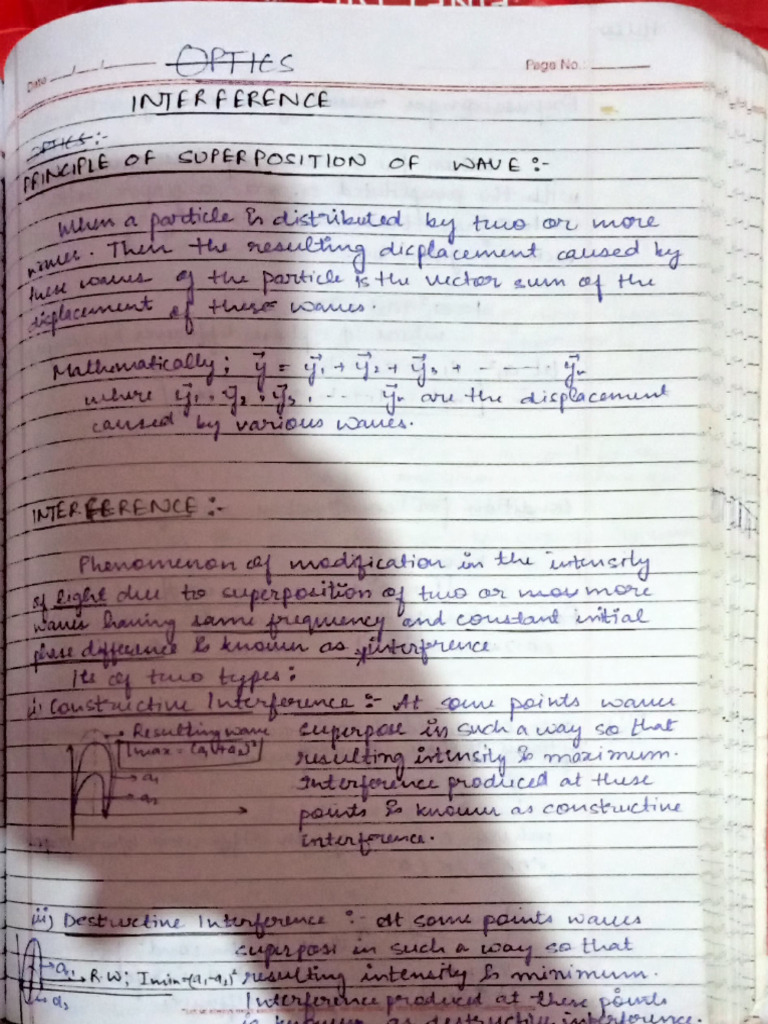 Date __/__/__ OPTICS Page No.
INTERFERENCE
OPTICS:-
PRINCIPLE OF SUPERPOSITION OF WAVE :-
When a particle is distributed by two or more
waves. Then the resulting displacement caused by
these waves of the particle is the vector sum of the
displacement of these waves.
Mathematically; y⃗ = y⃗₁ + y⃗₂ + y⃗₃ + - - - - y⃗n
where y⃗₁, y⃗₂, y⃗₃, - - - y⃗n are the displacement
caused by various waves.
INTERFERENCE :-
Phenomenon of modification in the intensity
of light due to superposition of two or more
waves having same frequency and constant initial
phase difference is known as interference
Its of two types:
i) Constructive Interference :- At some points waves
Resulting wave superpose in such a way so that
Imax = (a₁+a₂)² resulting intensity is maximum.
a₁ Interference produced at these
a₂ points is known as constructive
interference.
ii) Destructive Interference :- At some points waves
superpose in such a way so that
a₁ R.W; Imin=(a₁-a₂)² resulting intensity is minimum.
a₂ Interference produced at these points
is known as destructive interference.